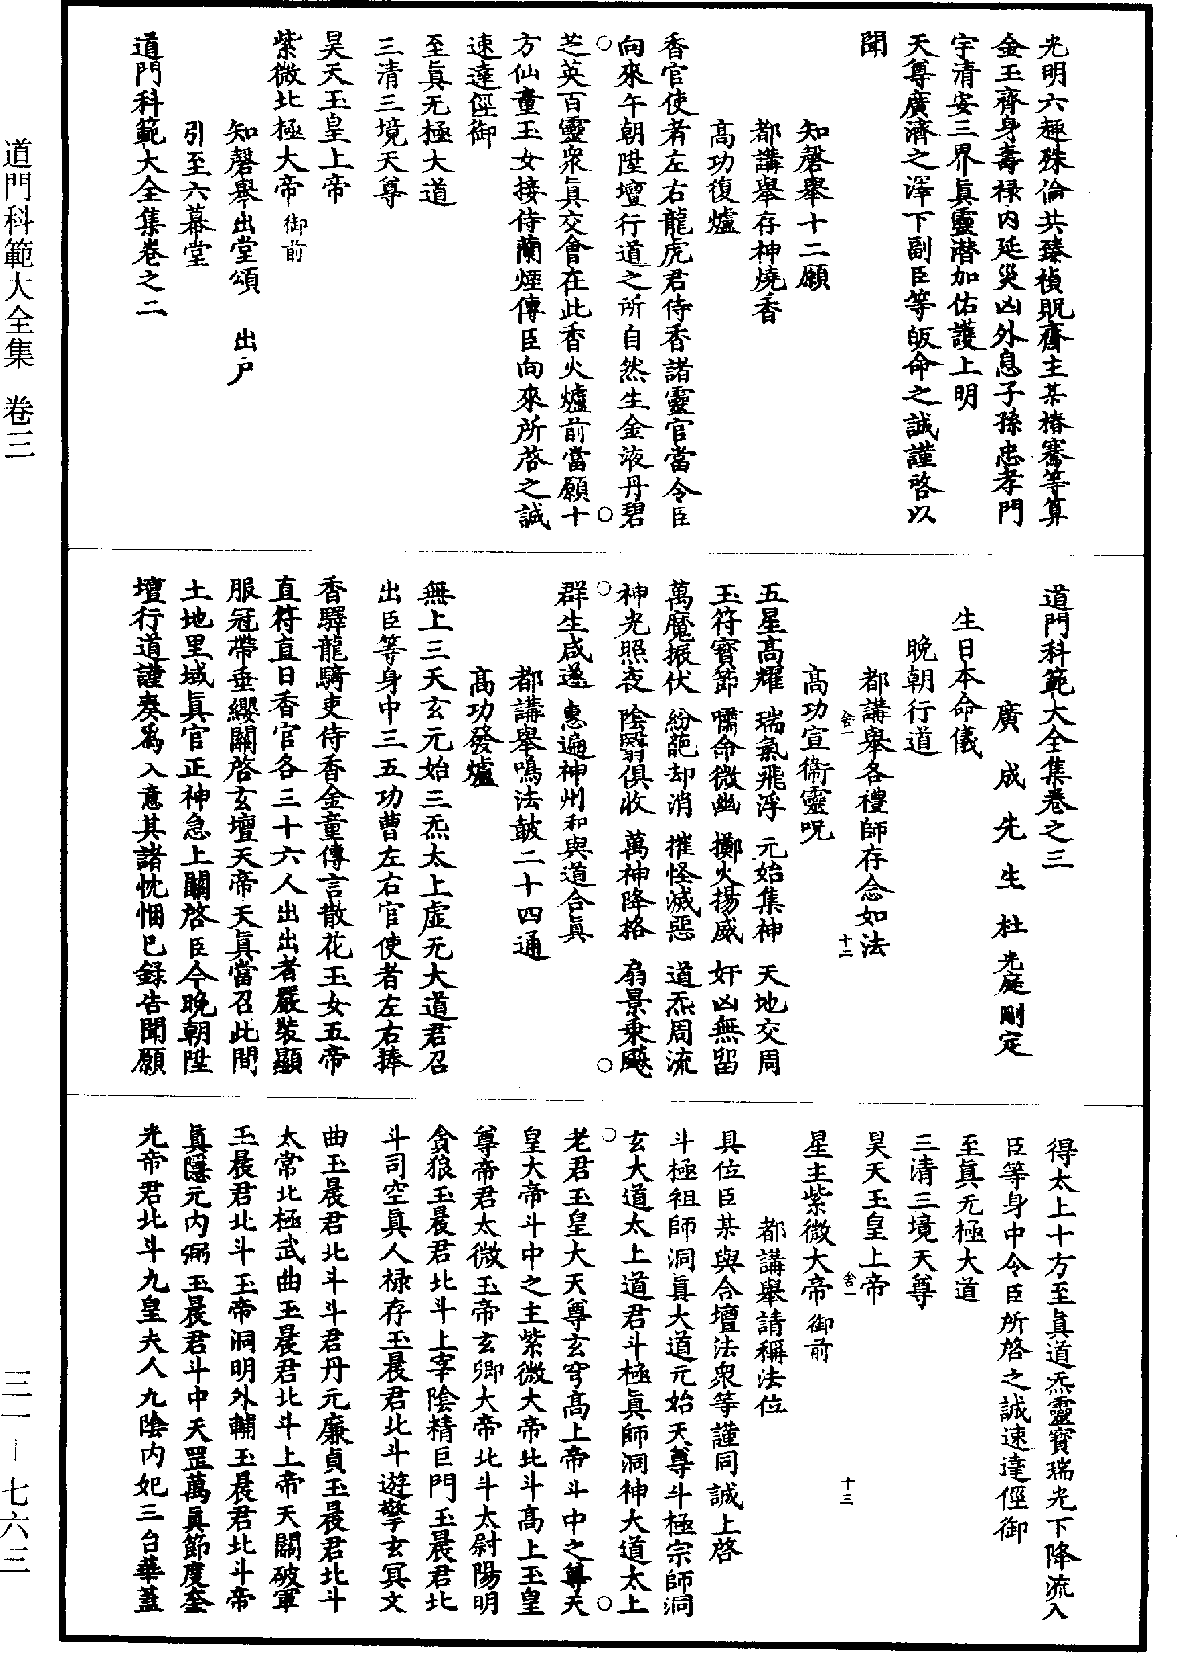 光明六趣殊倫共臻禎貺齋主某椿騫等算
金玉齊身壽祿內延災凶外息子孫忠孝門
宇清安三界眞靈潛加佑護上明
天尊廣濟之澤下副臣等皈命之誠謹啓以
聞
知磬舉十二願
都講舉存神燒香
高功復爐
香官使者左右龍虎君侍香諸靈官當令臣
向來午朝陞壇行道之所自然生金液丹碧
芝英百靈衆眞交會在此香火爐前當願十
方仙童玉女接侍蘭煙傳臣向來所啓之誠
速達徑御
至眞无極大道
三清三境天尊
昊天玉皇上帝
紫微北極大帝御前
知磬舉出堂頌　出戶
引至六幕堂
道門科範大全集卷之二
道門科範大全集卷之三
廣成先生杜光庭刪定
生日本命儀
晚朝行道
都講舉各禮師存念如法
高功宣衞靈呪
五星高耀　瑞氣飛浮　元始集神　天地交周
玉符寶節　嘯命微幽　擲火揚威　奸凶無留
萬魔振伏　紛葩却消　摧怪滅惡　道炁周流
神光照夜　陰翳俱收　萬神降格　扇景乘飈
群生咸遂　惠遍神州　和與道合眞
都講舉鳴法鼓二十四通
高功發爐
無上三天玄元始三炁太上虛无大道君召
出臣等身中三五功曹左右官使者左右捧
香驛龍騎吏侍香金童傳言散花玉女五帝
直符直日香官各三十六人出出者嚴裝顯
服冠帶垂纓關啓玄壇天帝天眞當召此間
土地里域眞官正神急上關啓臣今晚朝陞
壇行道謹奏爲入意其諸忱悃已錄告聞願
得太上十方至眞道炁靈寶瑞光下降流入
臣等身中令臣所啓之誠速達徑御
至眞无極大道
三清三境天尊
昊天玉皇上帝
星主紫微大帝御前
都講舉請稱法位
具位臣某與合壇法衆等謹同誠上啓
斗極祖師洞眞大道元始天尊斗極宗師洞
玄大道太上道君斗極眞師洞神大道太上
老君玉皇大天尊玄穹高上帝斗中之尊天
皇大帝斗中之主紫微大帝北斗高上玉皇
尊帝君太微玉帝玄卿大帝北斗太尉陽明
貪狼玉晨君北斗上宰陰精巨門玉晨君北
斗司空眞人祿存玉晨君北斗遊擊玄冥文
曲玉晨君北斗斗君丹元廉貞玉晨君北斗
太常北極武曲玉晨君北斗上帝天關破軍
玉晨君北斗玉帝洞明外輔玉晨君北斗帝
眞隱元內弼玉晨君斗中天罡萬眞節度奎
光帝君北斗九皇夫人九陰內妃三台華蓋
道門科範大全集　卷三
三一－七六三
十二
十三